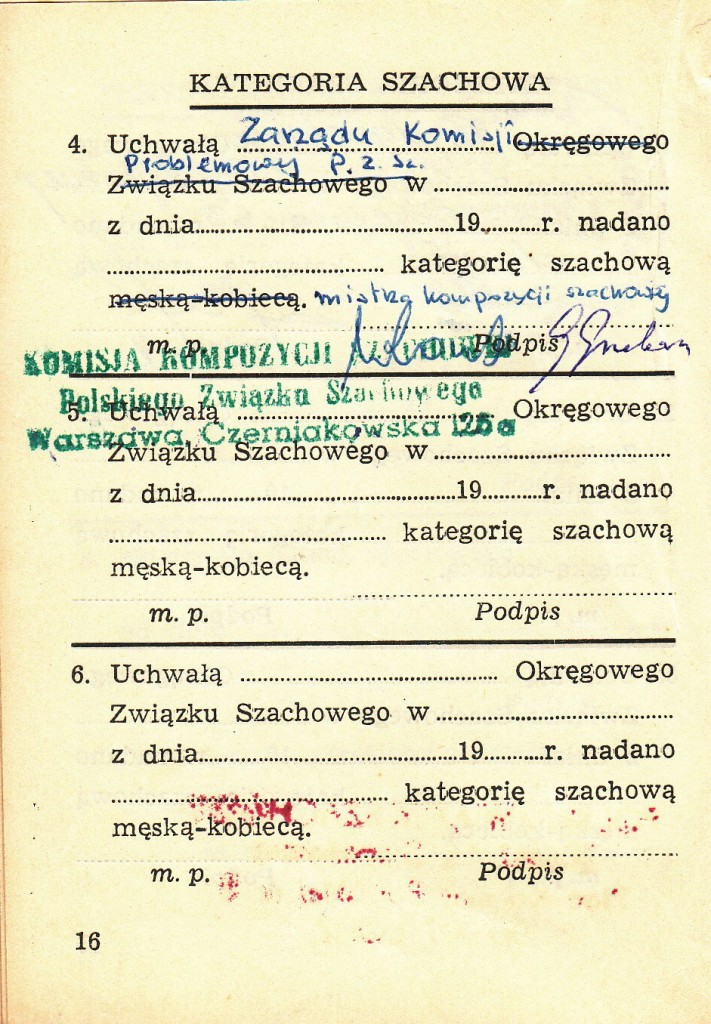 KATEGORIA SZACHOWA
4. Uchwałą Zarządu Komisji Okręgowego
Problemowej P. Z. Sz.
Związku Szachowego w ....................
z dnia....................19..........r. nadano
.................... kategorię szachową
męską-kobiecą. mistrza kompozycji szachowej
m. p. Podpis
KOMISJA KOMPOZYCJI SZACHOWEJ
Polskiego Związku Szachowego
Warszawa, Czerniakowska 126a
5. Uchwałą .................... Okręgowego
Związku Szachowego w ....................
z dnia....................19..........r. nadano
.................... kategorię szachową
męską-kobiecą.
m. p. Podpis
6. Uchwałą .................... Okręgowego
Związku Szachowego w ....................
z dnia....................19..........r. nadano
.................... kategorię szachową
męską-kobiecą.
m. p. Podpis
16